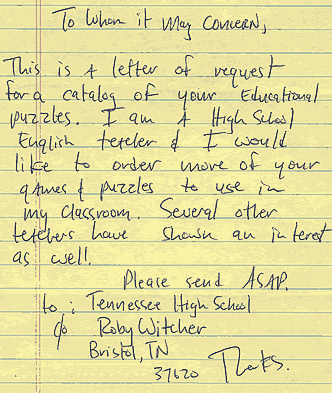 To Whom it May Concern,
This is A letter of request
for a catalog of your Educational
puzzles. I am A High School
English teteler & I would
like to order more of your
games & puzzles to use in
my classroom. Several other
tetehers have shown an interest
as well.
Please send ASAP.
to: Tennessee High School
c/o Roby Witcher
Bristol, TN
37620 Thanks.